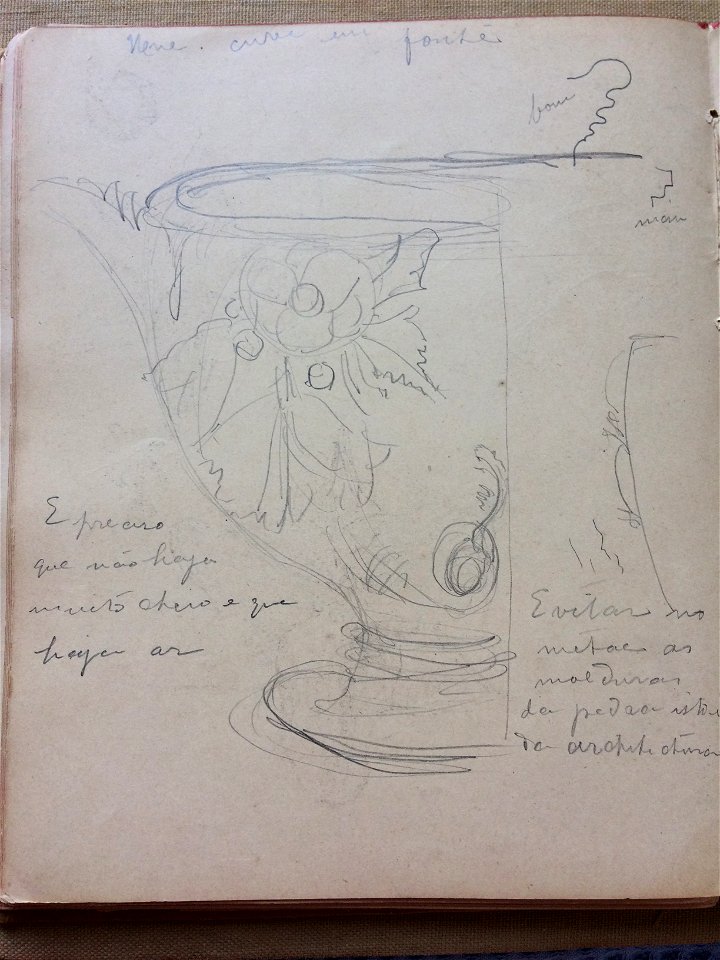 curva em
bom
mau
E preciso
que não haja
muito cheio e que
haja ar
Evitar no
metal as
molduras
da pedra isto é
da architectura